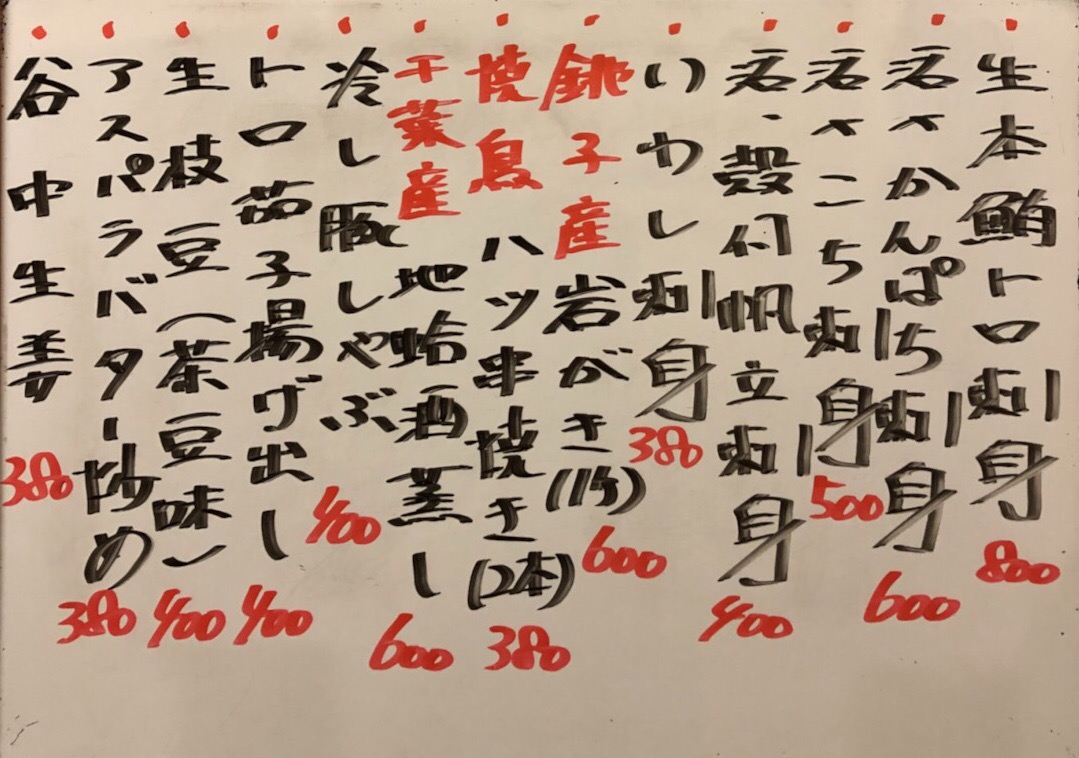 生本鮪トロ刺身 800
活〆かんぱち刺身 600
活〆こち刺身 500
活・殻付帆立刺身 400
いわし刺身 380
銚子産岩がき(1ケ) 600
焼鳥ハツ串焼き(2本) 380
千葉産地蛤酒蒸し 600
冷し豚しゃぶ 400
トロ茄子揚げ出し 400
生枝豆(茶豆味) 400
アスパラバター炒め 380
谷中生姜 380